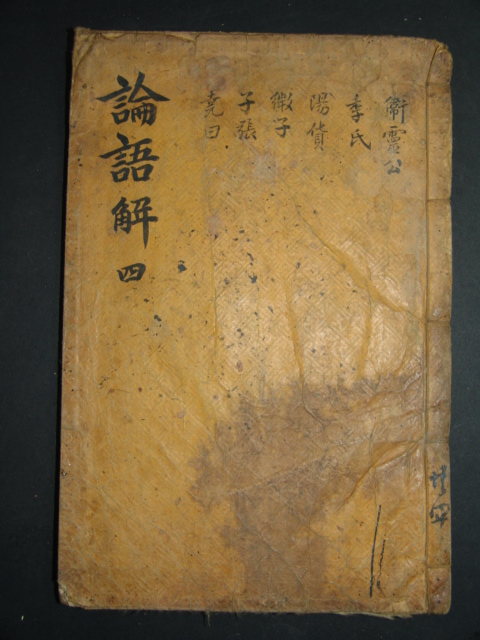 論語解 四
衛靈公
季氏
陽貨
微子
子張
堯曰